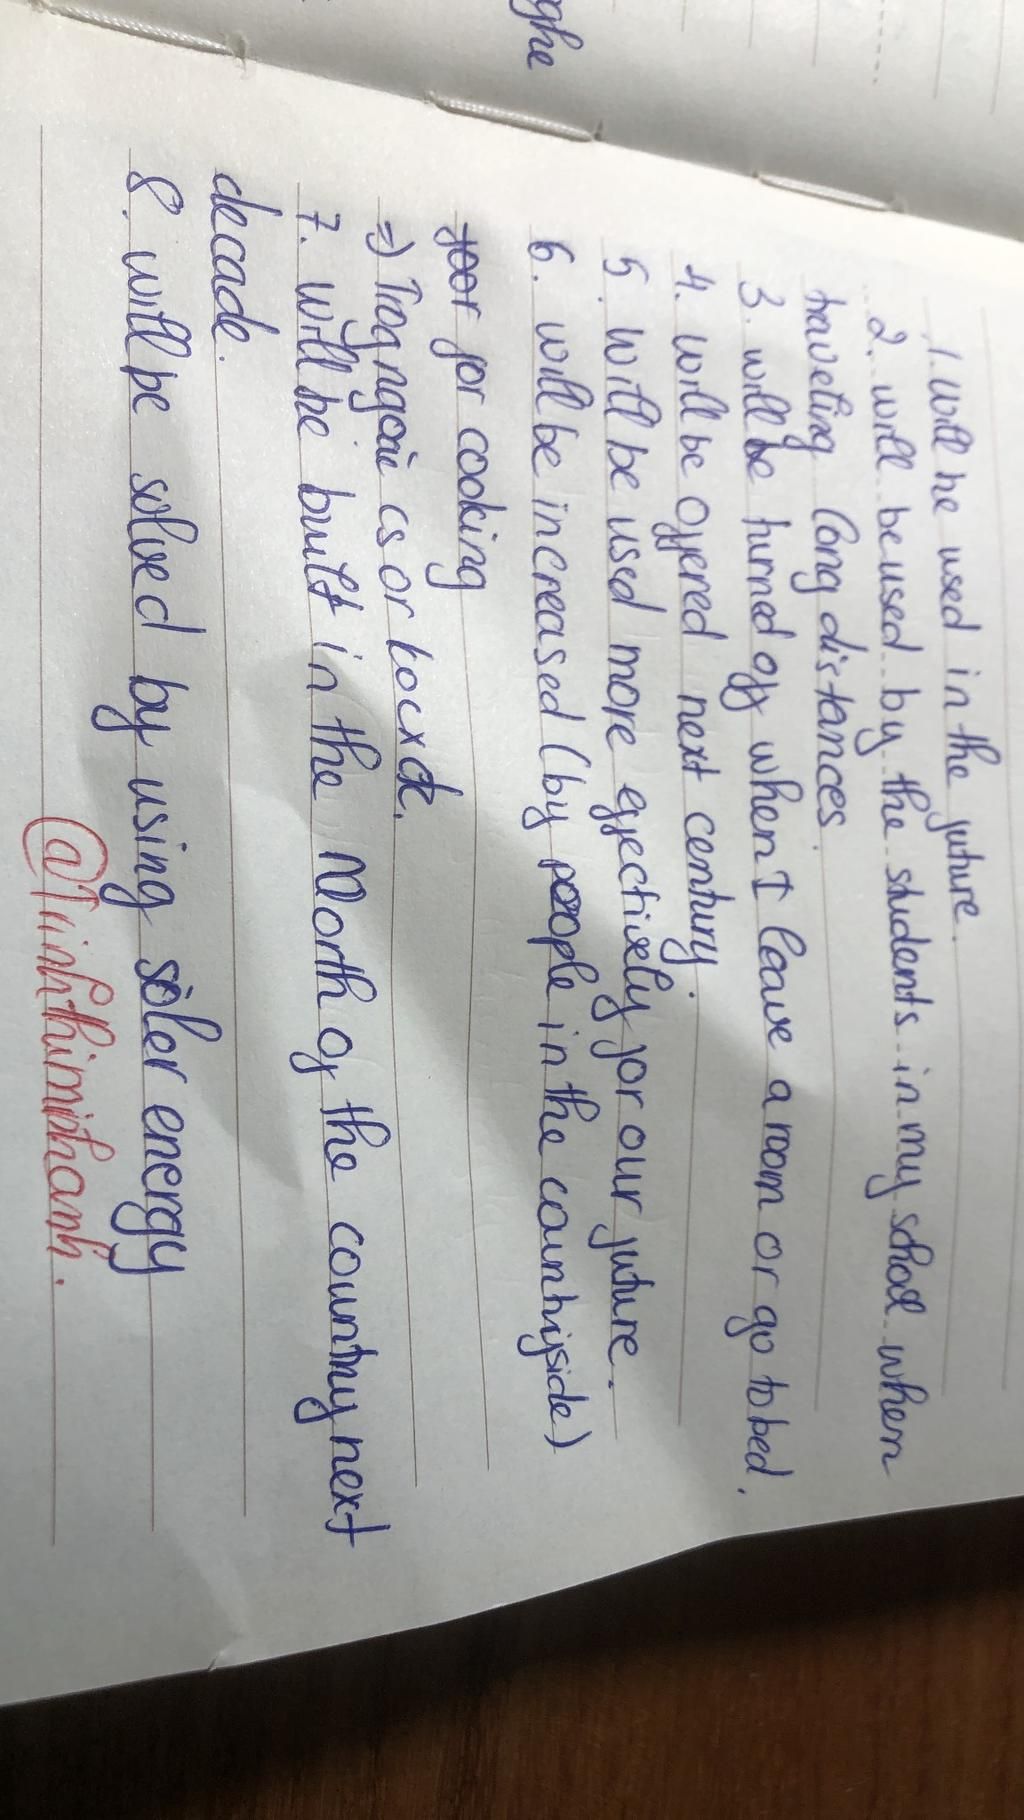 ghe
1. will be used in the future.
2. will be used by the students in my school when
traveling long distances.
3. will be turned off when I leave a room or go to bed.
4. will be offered next century
5. will be used more effectively for our future.
6. will be increased (by people in the countryside)
for cooking
=) Trog ngoặc cs or ko cx dc.
7. will be built in the North of the country next
decade.
8. will be solved by using soler energy
@Trinhthiminhanh.